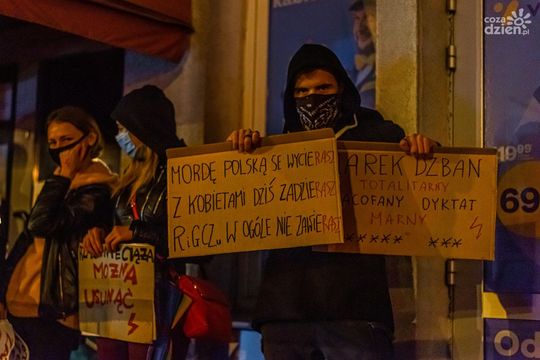 coza
dzien.pl
MORDĘ POLSKĄ SE WYCIERASZ
Z KOBIETAMI DZIŚ ZADZIERASZ
RiGCZu W OGÓLE NIE ZAWIERASZ
AREK DZBAN
TOTALITARNY
ACOFANY DYKTAT
MARNY
***** ***
MOŻNA
USUNĄĆ
19
69